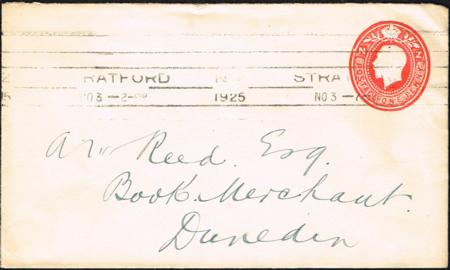 RATFORD N. STRA
NO 3 -2-PM 1925 NO 3 -
POSTAGE ONE PENNY
Reed. Esq.
Book. Merchant.
Dunedin